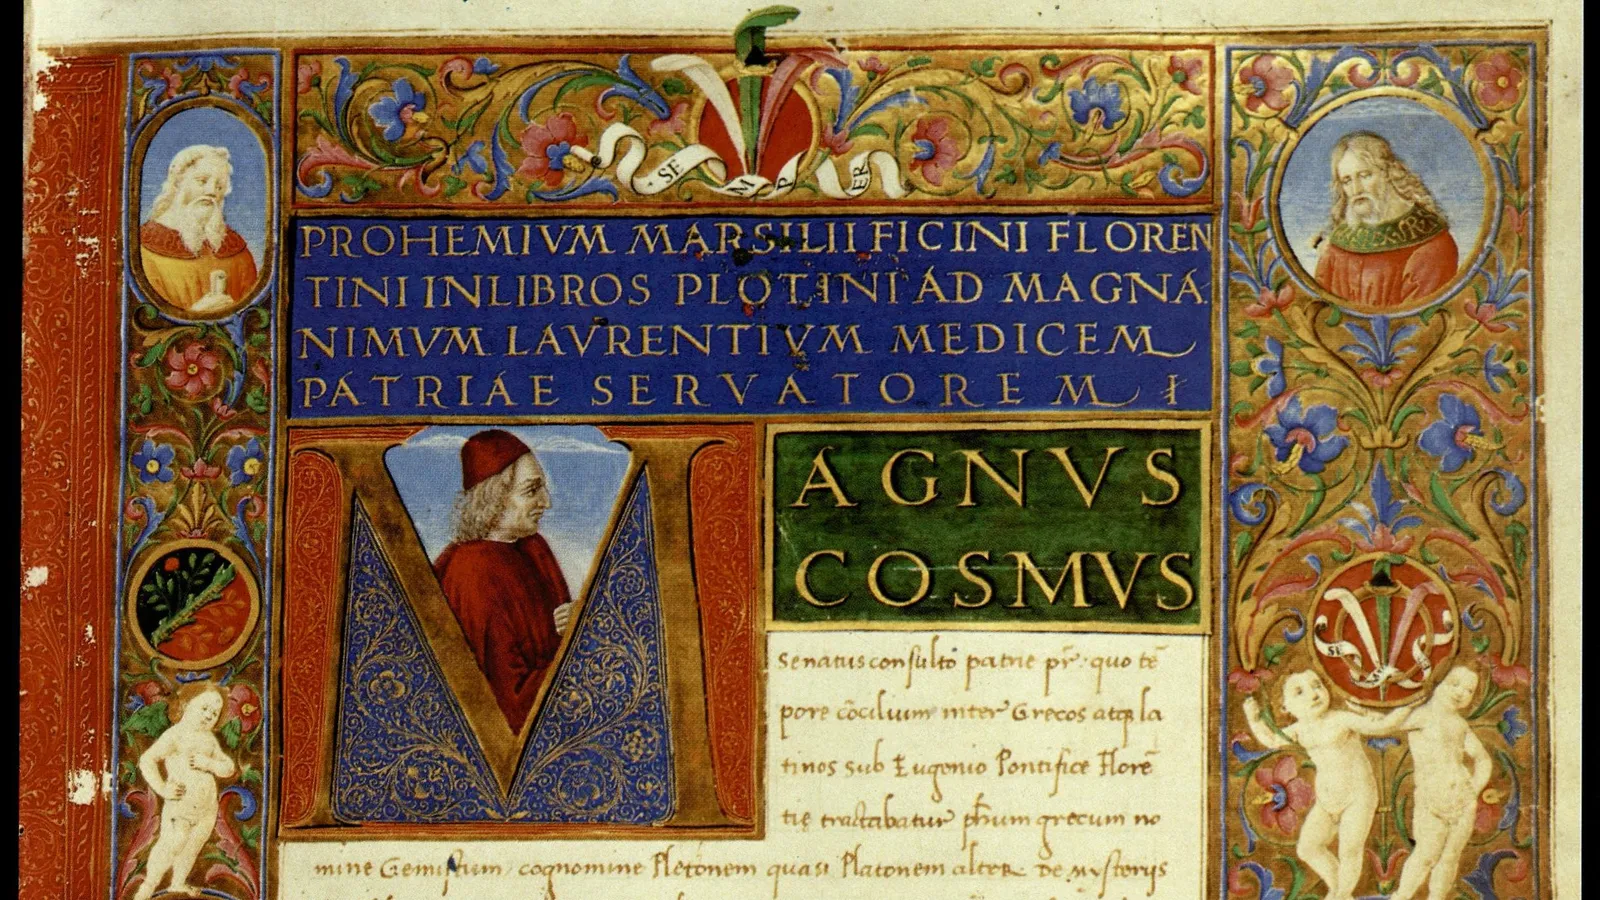 SEMPER
PROHEMIVM MARSILII FICINI FLOREN
TINI IN LIBROS PLOTINI AD MAGNA
NIMVM LAVRENTIVM MEDICEM
PATRIAE SERVATOREM I
MAGNVS
COSMVS
SEMPER
Senatus consulto patrie pr̄. quo tē
pore cōcilium inter Grecos atq; la
tinos sub Eugenio Pontifice Florē
tię tractabatur ph̄um grecum no
mine Gemistum cognomine Pletonem quasi Platonem alterum de mysteriis